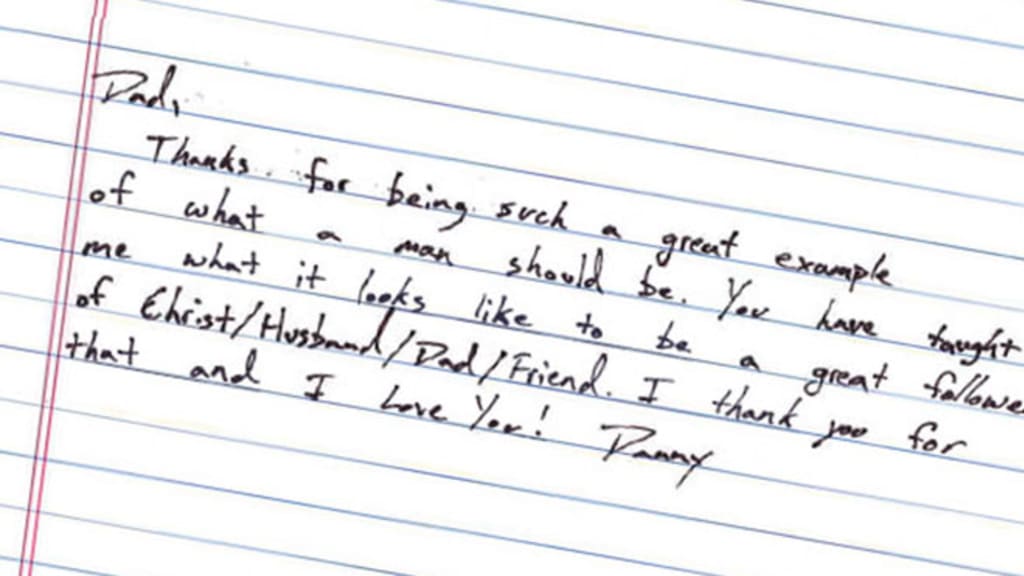 Dad,
Thanks for being such a great example
of what a man should be. You have taught
me what it looks like to be a great followe
of Christ/Husband/Dad/Friend. I thank you for
that and I Love You! Danny